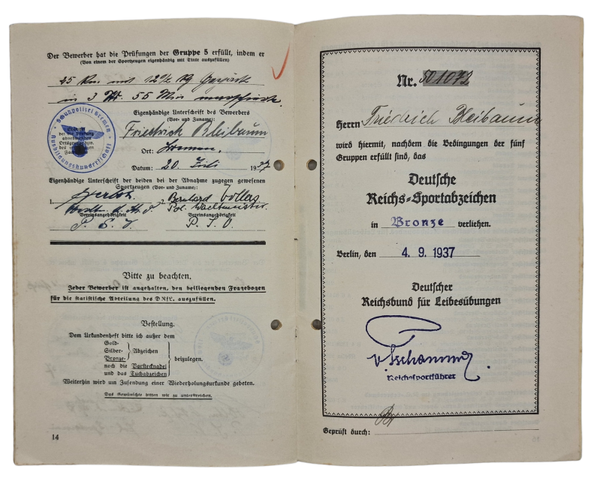 Der Bewerber hat die Prüfungen der Gruppe 5 erfüllt, indem er
(Von einem der Sportzeugen eigenhändig mit Tinte auszufüllen)
45 Km mit 12½ kg Gepäck
in 3 St. 55 Min
Eigenhändige Unterschrift des Bewerbers
(Vor- und Zuname):
Friedrich Bleibaum
Ort: Bremen
Datum: 20 Juli 1937
Schutzpolizei Bremen
Eigenhändige Unterschrift der beiden bei der Abnahme zugegen gewesenen
Sportzeugen (Vor- und Zuname):
Bernhard
Pol.
Vereinszugehörigkeit
Vereinszugehörigkeit
Bitte zu beachten.
Jeder Bewerber ist angehalten, den beiliegenden Fragebogen
für die statistische Abteilung des DRL. auszufüllen.
Bestellung.
Dem Urkundenheft bitte ich außer dem
Gold-
Silber-
Bronze-
Abzeichen
noch die Vorstecknadel
und das Tuchabzeichen
beizulegen.
Weiterhin wird um Zusendung einer Wiederholungsurkunde gebeten.
14
Nr. 501073
Herrn Friedrich Bleibaum
wird hiermit, nachdem die Bedingungen der fünf
Gruppen erfüllt sind, das
Deutsche
Reichs-Sportabzeichen
in Bronze verliehen.
Berlin, den 4. 9. 1937
Deutscher
Reichsbund für Leibesübungen
v. Tschammer
Reichssportführer
Geprüft durch: